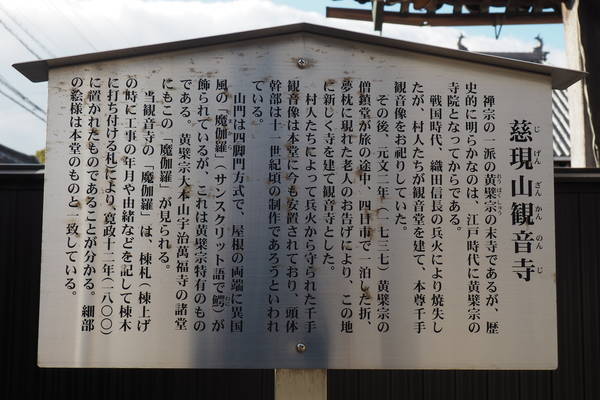 慈現山観音寺
じげんざんかんのんじ
禅宗の一派の黄檗宗の末寺であるが、歴
おうばくしゅう
史的に明らかなのは、江戸時代に黄檗宗の
寺院となってからである。
戦国時代、織田信長の兵火により焼失し
たが、村人たちが観音堂を建て、本尊千手
観音像をお祀りしていた。
その後、元文二年（一七三七）黄檗宗の
僧鎖堂が旅の途中、四日市で一泊した折、
夢枕に現れた老人のお告げにより、この地
に新しく寺を建て観音寺とした。
村人たちによって兵火から守られた千手
観音像は本堂に今も安置されており、頭体
幹部は十一世紀頃の制作であろうといわれ
ている。
山門は四脚門方式で、屋根の両端に異国
風の「魔伽羅」（サンスクリット語で鰐）が
まから
わに
飾られているが、これは黄檗宗特有のもの
である。黄檗宗大本山宇治萬福寺の諸堂
にもこの「魔伽羅」が見られる。
当観音寺の「魔伽羅」は、棟札（棟上げ
の時に工事の年月や由緒などを記して棟木
に打ち付ける札）により、寛政十二年（一八〇〇）
に置かれたものであることが分かる。細部
の絵様は本堂のものと一致している。